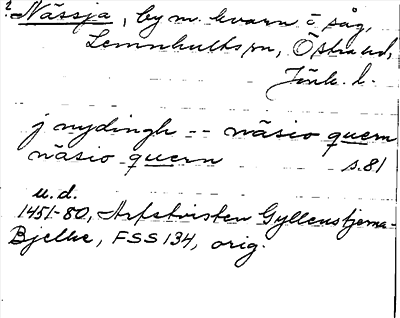 ? Nässja, by m. kvarn o såg,
Lemnhults sn, Östra hd,
Jönk. l.
j nydingh -- näsio quern
näsio quern s.81
u.d.
1451-80, Arfstvisten Gyllenstjerna-
Bjelke, FSS 134, orig.